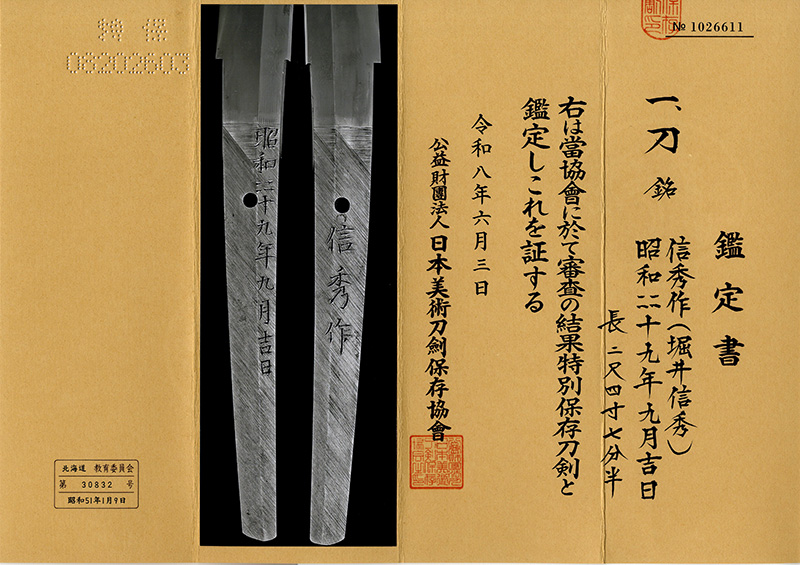 № 1026611
鑑定書
一、刀 銘 信秀作(堀井信秀)
昭和二二十九年九月吉日
長 二尺四寸七分半
右は當協會に於て審査の結果特別保存刀剣と
鑑定しこれを証する
令和八年六月三日
公益財團法人 日本美術刀劍保存協會
信秀作
昭和二二十九年九月吉日
特保
08202603
北海道 教育委員会
第 30832 号
昭和51年1月9日